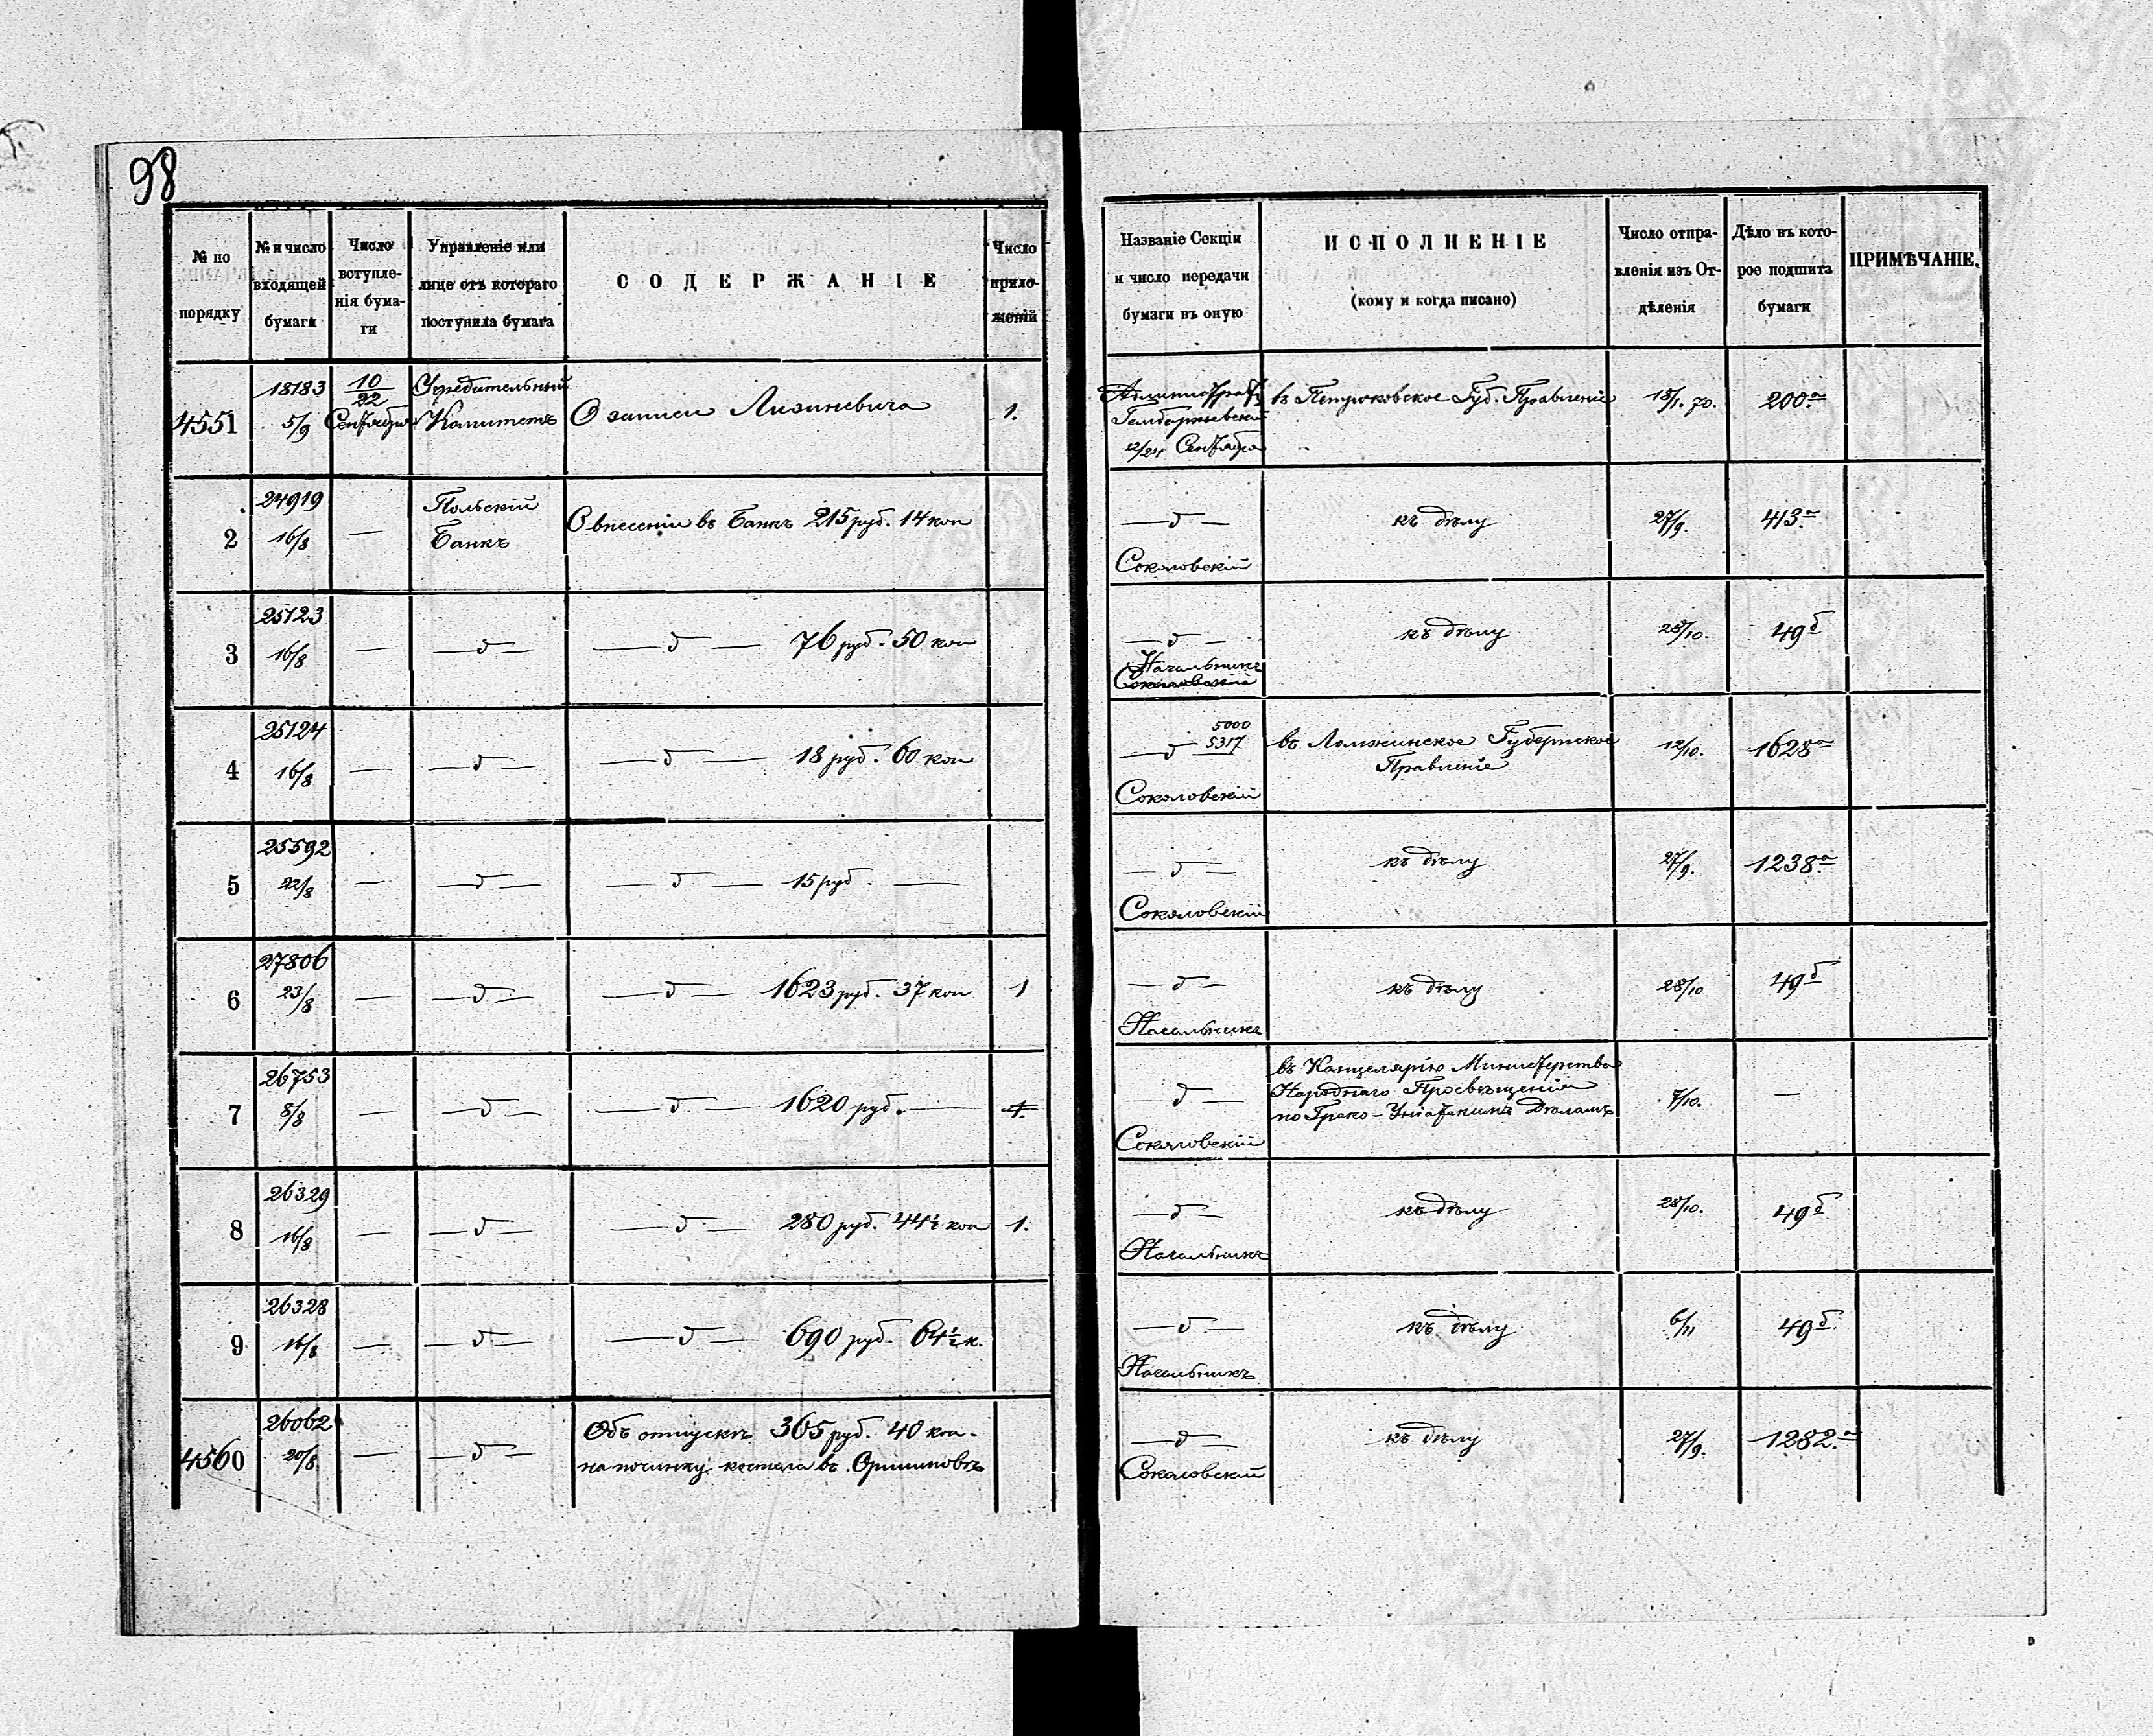 98
№ по порядку
№ и число входящей бумаги
Число вступле-нія бума-ги
Управленіе или лице отъ котораго поступила бумага
СОДЕРЖАНІЕ
Число прило-женій
Названіе Секціи и число передачи бумаги въ оную
ИСПОЛНЕНІЕ (кому и когда писано)
Число отпра-вленія изъ От-дѣленія
Дѣло въ кото-рое подшита бумаги
ПРИМѢЧАНІЕ.
4551 18183 5/9 10/22 Сентября Учредительный Комитетъ О записи 1. 12/24 Сентября въ Петроковское Губ. Правленіе 18/1. 70. 200.а
2 24919 16/8 — Польскій Банкъ О внесеніи въ Банкъ 215 руб. 14 коп — д — Соколовскій къ дѣлу 27/9. 413.а
3 25123 16/8 — — д — — д — 76 руб. 50 коп — д — Начальникъ Соколовскій къ дѣлу 28/10. 49б
4 25124 16/8 — — д — — д — 18 руб. 60 коп — д — 5000 5317 Соколовскій въ Ломжинское Губернское Правленіе 12/10. 1628а
5 25592 22/8 — — д — — д — 15 руб. — — д — Соколовскій къ дѣлу 27/9. 1238.а
6 27806 23/8 — — д — — д — 1623 руб. 37 коп 1 — д — Начальникъ къ дѣлу 28/10 49б
7 26753 8/8 — — д — — д — 1620 руб. — 1. — д — Соколовскій въ Канцелярію Министерства Народнаго Просвѣщенія по Греко-Уніатскимъ Дѣламъ 7/10. —
8 26329 16/8 — — д — — д — 280 руб. 44½ коп 1. — д — Начальникъ къ дѣлу 28/10. 49б
9 26328 16/8 — — д — — д — 690 руб. 64½ к. — д — Начальникъ къ дѣлу 6/11 49б.
4560 26062 20/8 — — д — Объ отпускѣ 365 руб. 40 коп. на починку костела въ — д — Соколовскій къ дѣлу 27/9. 1282.а